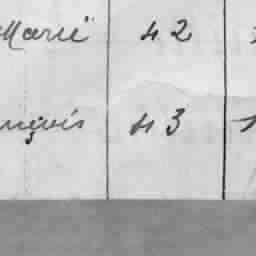 Marie 42
nçois 43 1